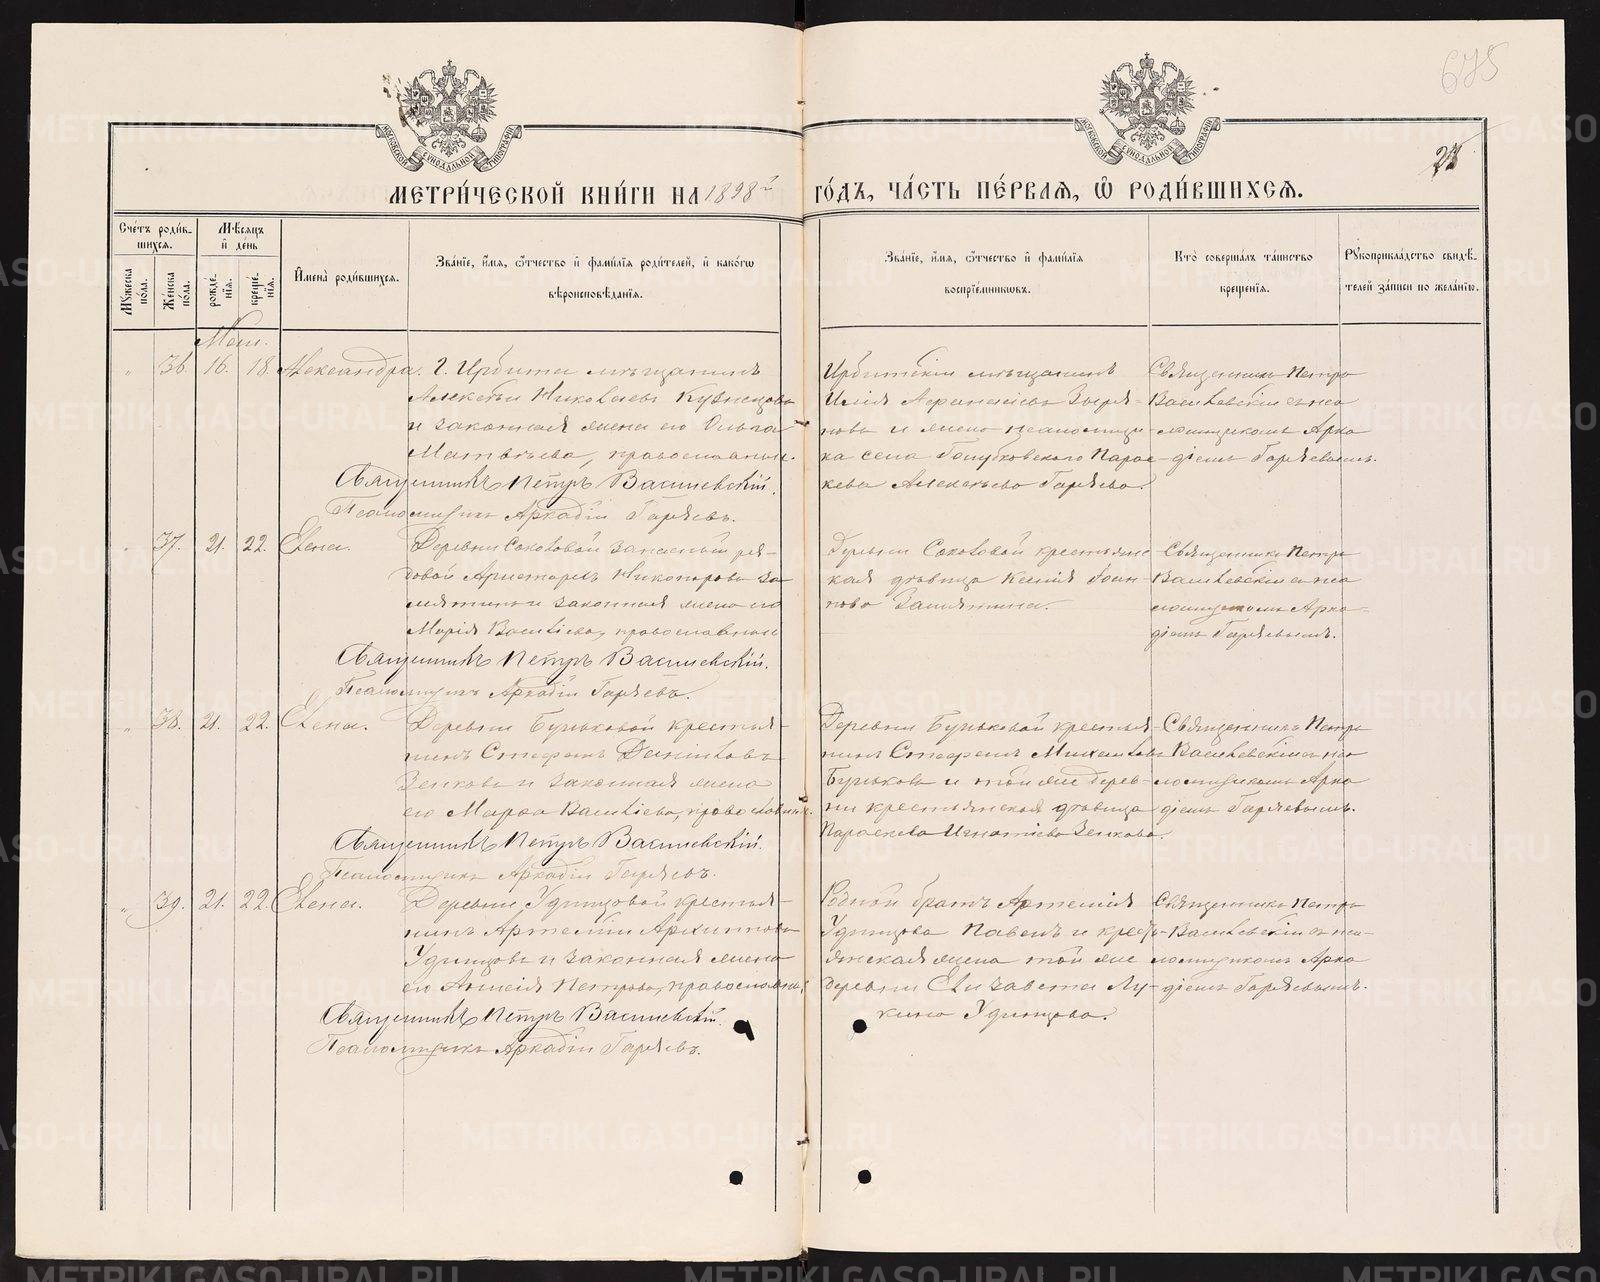 675
25
МОСКОВСКОЙ СѴНОДАЛЬНОЙ ТИПОГРАФІИ
МОСКОВСКОЙ СѴНОДАЛЬНОЙ ТИПОГРАФІИ
МЕТРИ́ЧЕСКОЙ КНИ́ГИ НА 1898й ГО́ДЪ, ЧА́СТЬ ПЕ́РВАѦ, Ѡ РОДИ́ВШИХСѦ.
Сче́тъ роди́в-
шихсѧ.
Мꙋжеска по́ла.
Же́нска по́ла.
Мѣ́сѧцъ
и҆ де́нь
рожде́-
нїѧ.
креще́-
нїѧ.
И҆мена̀ роди́вшихсѧ.
Зва́нїе, и҆́мѧ, ѻ҆́тчество и҆ фами́лїѧ роди́телей, и҆ како́гѡ
вѣроисповѣ́данїѧ.
Зва́нїе, и҆́мѧ, ѻ҆́тчество и҆ фами́лїѧ
воспрїе́мникѡвъ.
Кто̀ соверша́лъ та́инство
креще́нїѧ.
Рꙋкоприкла́дство свидѣ́-
телей за́писи по жела́нїю.
Маи.
„ 36. 16. 18. Александра. Г. Ирбита мѣщанинъ
Алексѣй Николаевъ Кузнецовъ
и законная жена его Ольга
Матвѣева, православныи.
Священникъ Петръ Василевскій.
Псаломщикъ Аркадій Гаряевъ.
Ирбитскій мѣщанинъ
Илія Аѳанасіевъ Зыря-
новъ и жена псаломщи-
ка села Голубковского Парас-
кева Алексѣева Гаряева.
Священникъ Петръ
Василевскій съ пса-
ломщикомъ Арка
діемъ Гаряевымъ.
„ 37. 21. 22. Елена. Деревни Соколовой запасный ря-
довой Аристархъ Никаноровъ За
мятинъ и законная жена его
Марія Василіева, православныи
Священникъ Петръ Василевскій.
Псаломщикъ Аркадій Гаряевъ.
Деревни Соколовой крестьянс
кая дѣвица Ксенія Іоан-
нова Замятина.
Священникъ Петръ
Василевскій съ пса
ломщикомъ Арка-
діемъ Гаряевымъ.
„ 38. 21. 22. Елена. Деревни Буньковой крестья-
нинъ Стефанъ Даніиловъ
Зенковъ и законная жена
его Марѳа Василіева, православныи.
Священникъ Петръ Василевскій.
Псаломщикъ Аркадій Гаряевъ.
Деревни Буньковой крестья-
нинъ Стефанъ Михаиловъ
Буньковъ и той же дерев-
ни крестьянская дѣвица
Параскева Игнатіева Зенкова.
Священникъ Петръ
Василевскій съ пса
ломщикомъ Арка
діемъ Гаряевымъ.
„ 39. 21. 22. Елена. Деревни Удинцовой крестья-
нинъ Артемій Архиповъ
Удинцовъ и законная жена
его Анисія Петрова, православны,
Священникъ Петръ Василевскій.
Псаломщикъ Аркадій Гаряевъ.
Родной братъ Артемія
Удинцова Павелъ и кресть-
янская жена той же
деревни Елизавета Лу-
кина Удинцова.
Священникъ Петръ
Василевскій съ пса-
ломщикомъ Арка
діемъ Гаряевымъ.
METRIKI.GASO-URAL.RU